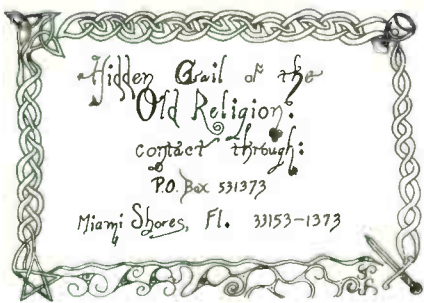 Hidden Grail of the
Old Religion:
contact through:
P.O. Box 531373
Miami Shores, Fl. 33153-1373